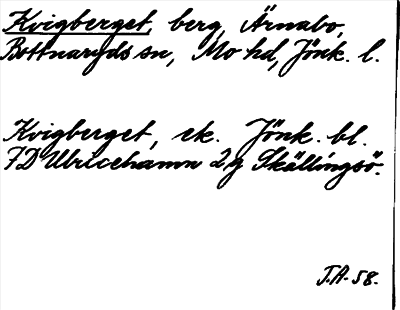 Kvigberget, berg, Ärnabo,
Bottnaryds sn, Mo hd, Jönk. l.
Kvigberget, ek. Jönk. bl.
7D Ulricehamn 2g Skällingsö.
J.A. 58.